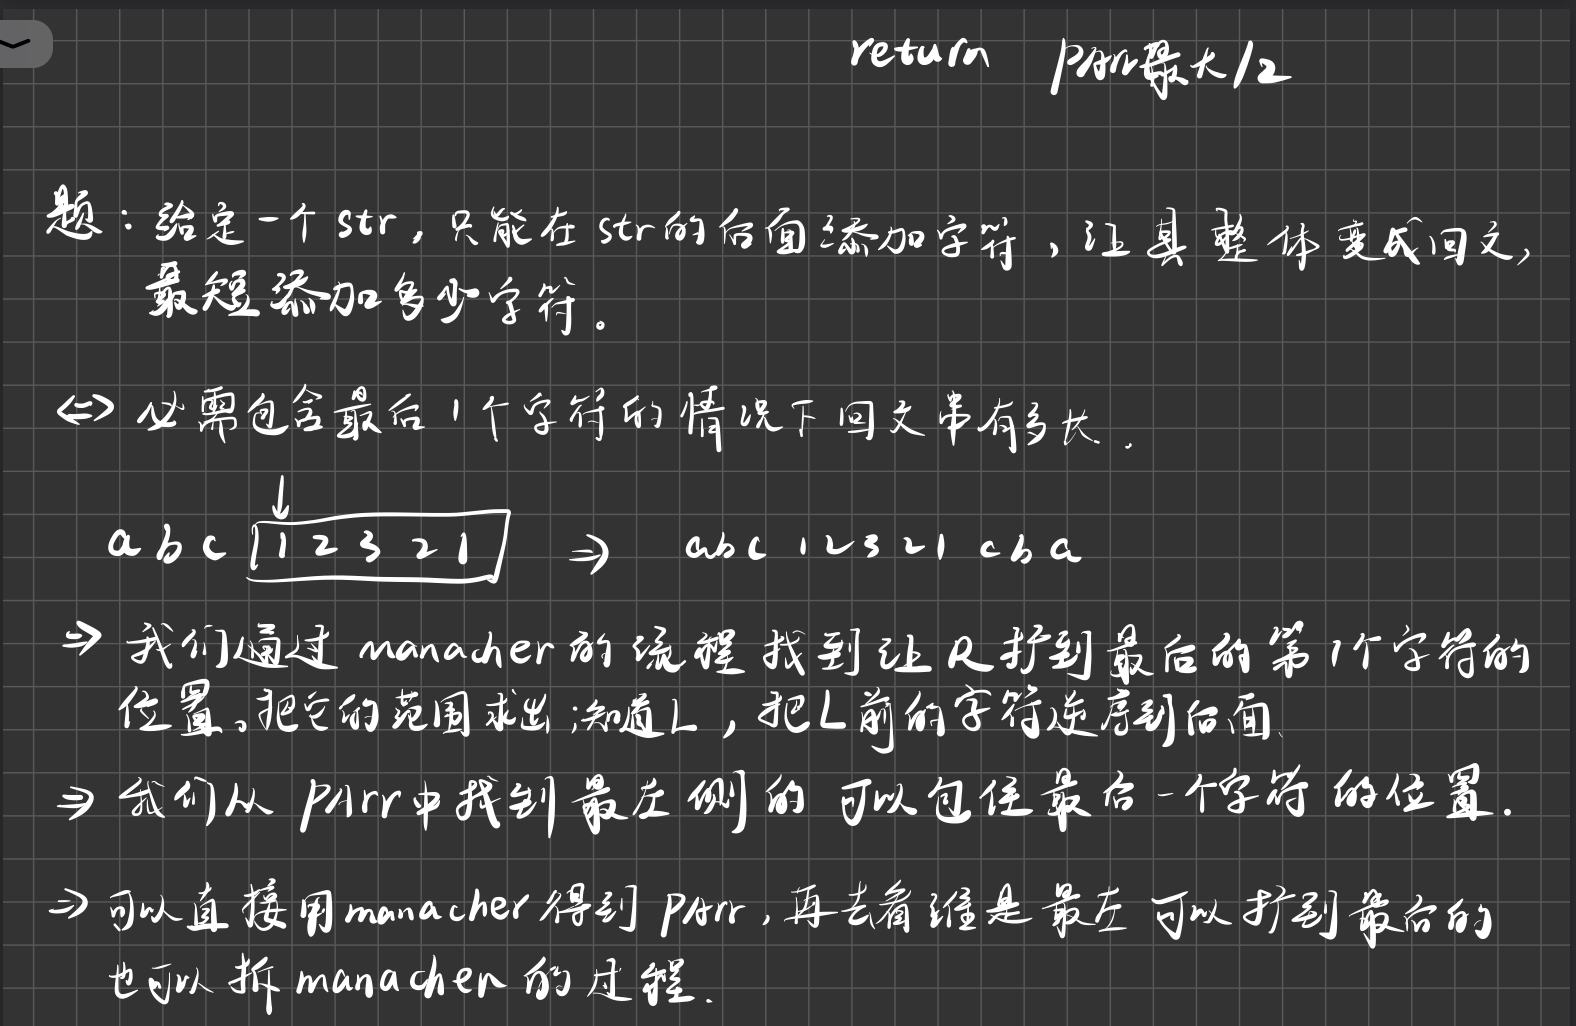 return pArr最大/2
题：给定一个str，只能在str的后面添加字符，让其整体变成回文，
最短添加多少字符。
<=> 必需包含最后1个字符的情况下回文串有多长.
a b c 1 2 3 2 1 => abc 12321 cba
=> 我们通过manacher的流程找到让R扩到最后的第1个字符的
位置。把它的范围求出;知道L，把L前的字符逆序到后面.
=> 我们从pArr中找到最左侧的可以包住最后一个字符的位置.
=> 可以直接用manacher得到pArr,再去看谁是最左可以扩到最后的
也可以拆manacher的过程.